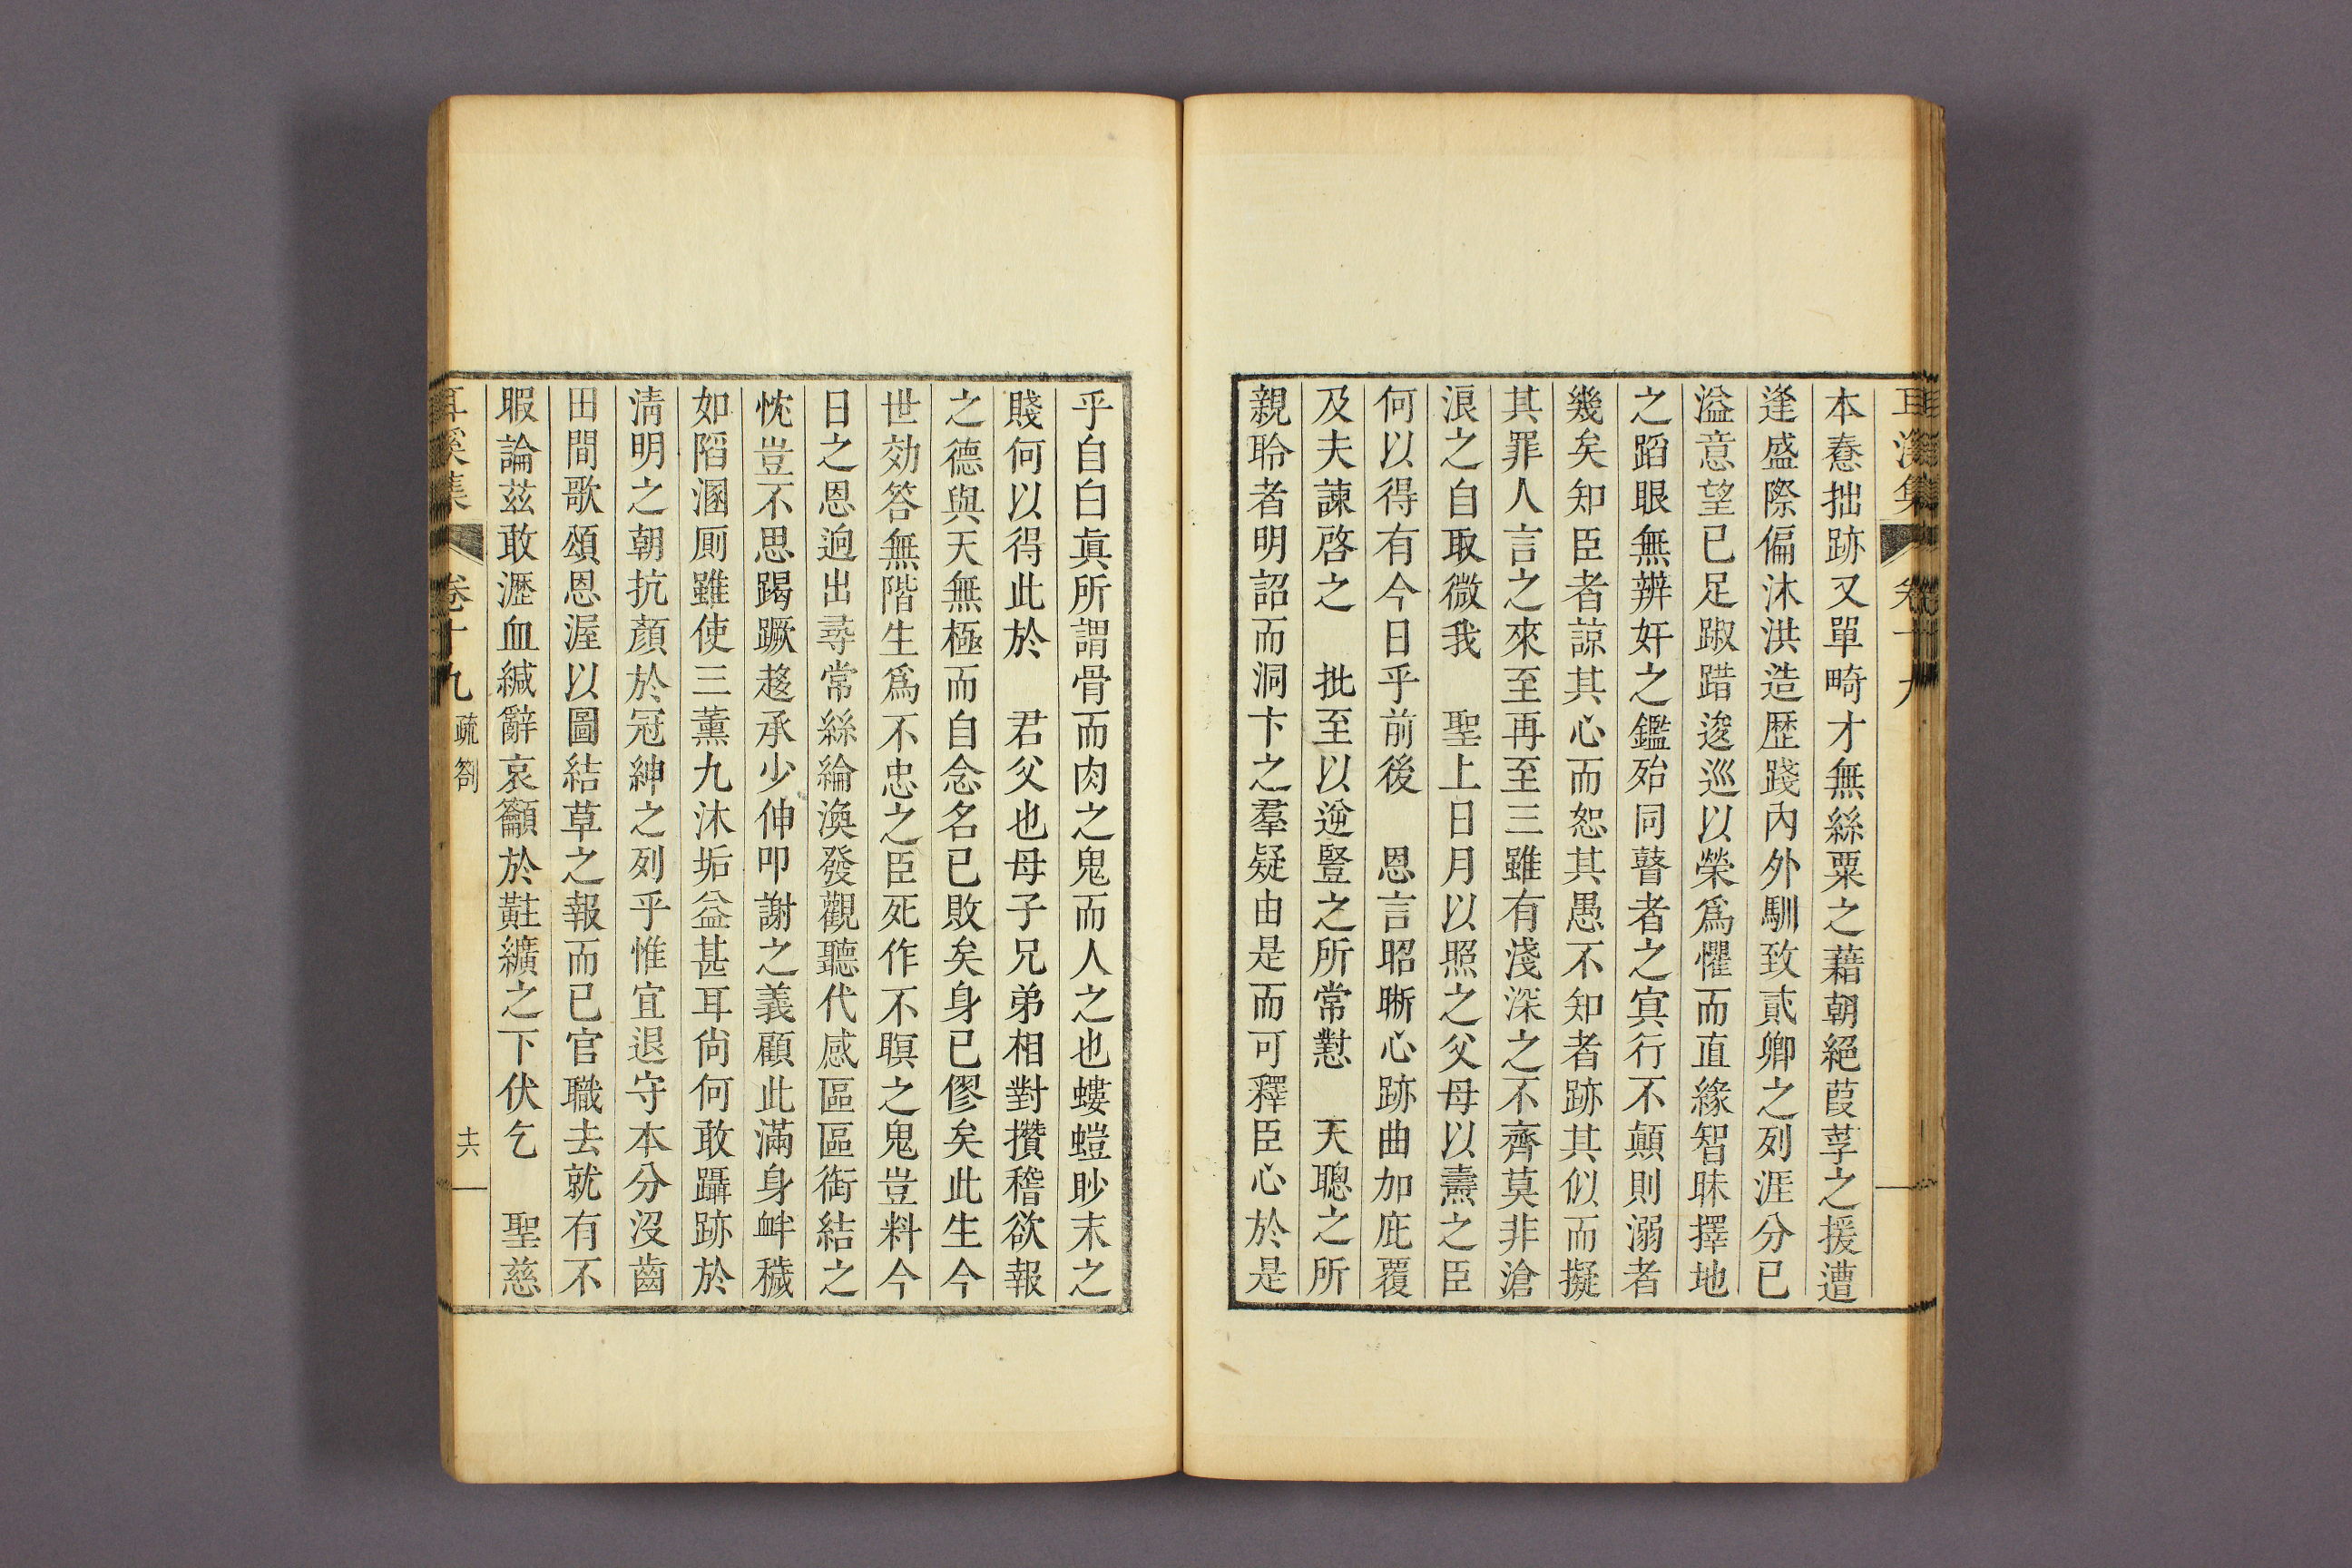 耳溪集 卷十九
本惷拙跡又單畸才無絲粟之藉朝絕葭莩之援遭
逢盛際偏沐洪造歷踐內外馴致貳卿之列涯分已
溢意望已足踧踖逡巡以榮爲懼而直緣智昧擇地
之蹈眼無辨奸之鑑殆同瞽者之㝠行不顛則溺者
幾矣知臣者諒其心而恕其愚不知者跡其似而擬
其罪人言之來至再至三雖有淺深之不齊莫非滄
浪之自取微我　聖上日月以照之父母以燾之臣
何以得有今日乎前後　恩言昭晣心跡曲加庇覆
及夫諫啓之　批至以逆豎之所常懟　天聰之所
親聆者明詔而洞卞之羣疑由是而可釋臣心於是
乎自白眞所謂骨而肉之鬼而人之也螻螘眇末之
賤何以得此於　君父也母子兄弟相對攢稽欲報
之德與天無極而自念名已敗矣身已僇矣此生今
世効答無階生爲不忠之臣死作不暝之鬼豈料今
日之恩逈出尋常絲綸渙發觀聽代感區區銜結之
忱豈不思踢蹶趍承少伸叩謝之義顧此滿身衅穢
如陷溷厠雖使三薰九沐垢益甚耳尙何敢躡跡於
淸明之朝抗顏於冠紳之列乎惟宜退守本分沒齒
田間歌頌恩渥以圖結草之報而已官職去就有不
暇論茲敢瀝血緘辭哀籲於黈纊之下伏乞　聖慈
耳溪集 卷十九 疏箚 十六